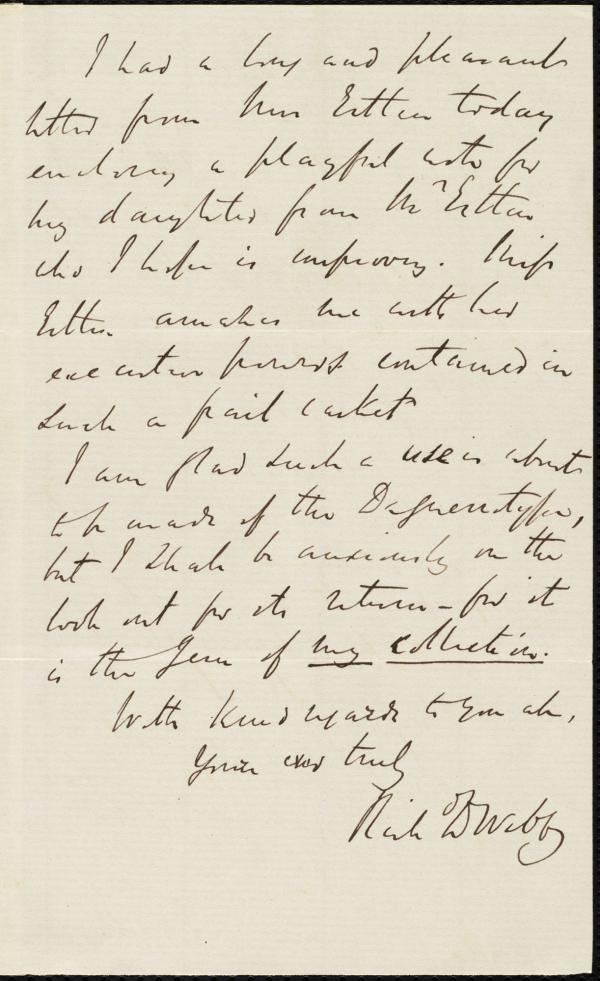 I had a long and pleasant
letter from Miss Estlin today
enclosing a playful note for
my daughter from Mr Estlin
who I hope is improving. Miss
Estlin amazes me with her
executive powers contained in
such a frail casket
I am glad such a use is about
to be made of the Daguerreotype,
but I shall be anxiously on the
look out for its return - for it
is the Gem of my collection.
With kind regards to you all,
Yours ever truly
Rich D Webb